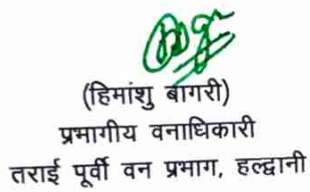 (हिमांशु बागरी)
प्रभागीय वनाधिकारी
तराई पूर्वी वन प्रभाग, हल्द्वानी